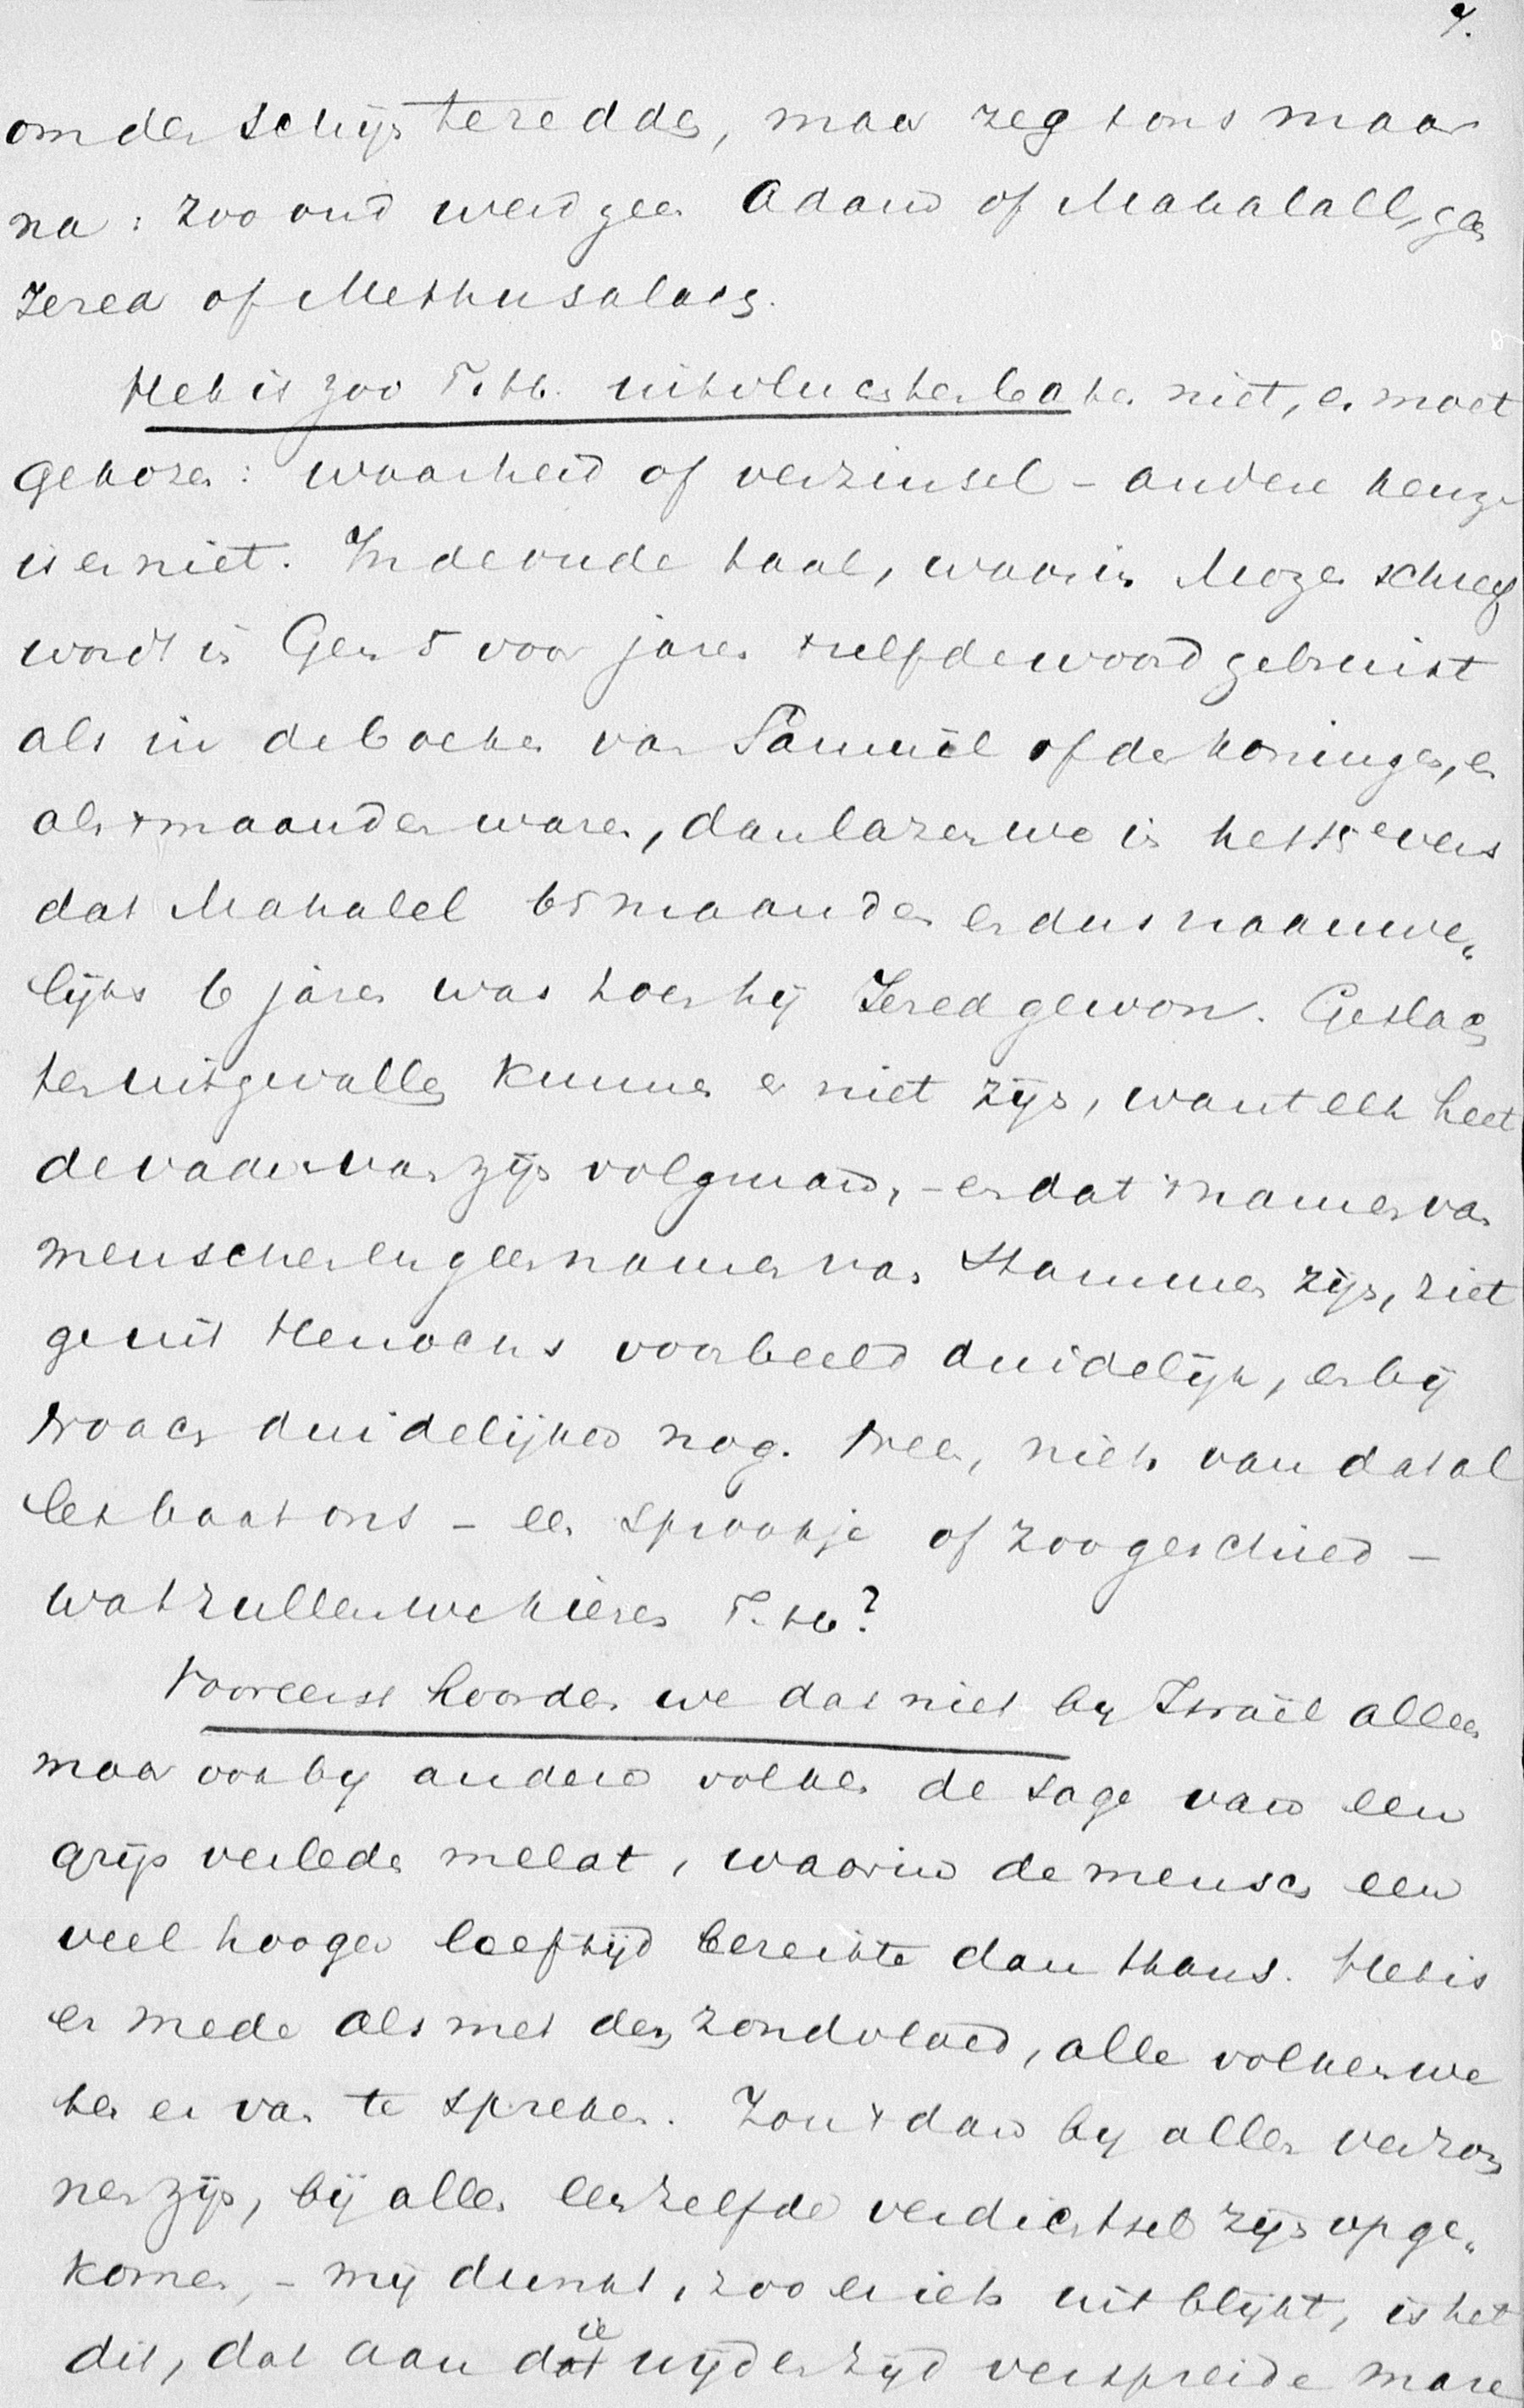 7.
om den schijn te redden, maar zegt ons maar
na: zoo oud werd geen Adam of Mahalall, geen
Jered of Methusalach.
Het is zoo T. H. uitvluchten baten niet, er moet
gekozen: waarheid of verzinsel - andere keuze
is er niet. In de oude taal, waarin Mozes schreef
wordt in Gen 5 voor jaren 't zelfde woord gebruikt
als in de boeken van Samuël of der koningen, en
als 't maanden waren, dan lazen we in het 15e vers
dat Mahalel 65 maanden en dus naauwe„
lijks 6 jaren was toen hij Jered gewon. Geslach
ten uitgevallen kunnen er niet zijn, want elk heet
de vader van zijn volgman, - en dat 't namen van
menschen en geen namen van Stammen zijn, ziet
ge uit Henochs voorbeeld duidelijk, en bij
Noach duidelijker nog. Neen, niets van dat al
les baat ons - een sprookje of zoo geschied -
wat zullen we kiezen T. H.?
Vooreerst hoorden we dat niet by Israël alleen
maar ook by andere volken de sage van een
grijs verleden meldt, waarin de mensch een
veel hooger leeftijd bereikte dan thans. Het is
er mede als met den zondvloed, alle volken we
ten er van te spreken. Zou 't dan by allen verzon
nen zijn, bij allen eenzelfde verdichtsel zijn opge„
komen, - mij dunkt, zoo er iets uit blijkt, is het
dit, dat aan die wijd en zijd verspreide mare